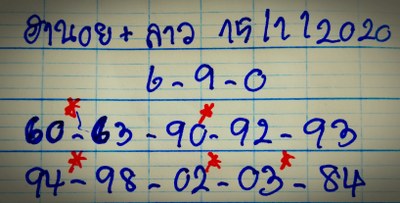 ฮานอย + ลาว 15/1/2020
6 - 9 - 0
60 - 63 - 90 - 92 - 93
94 - 98 - 02 - 03 - 84